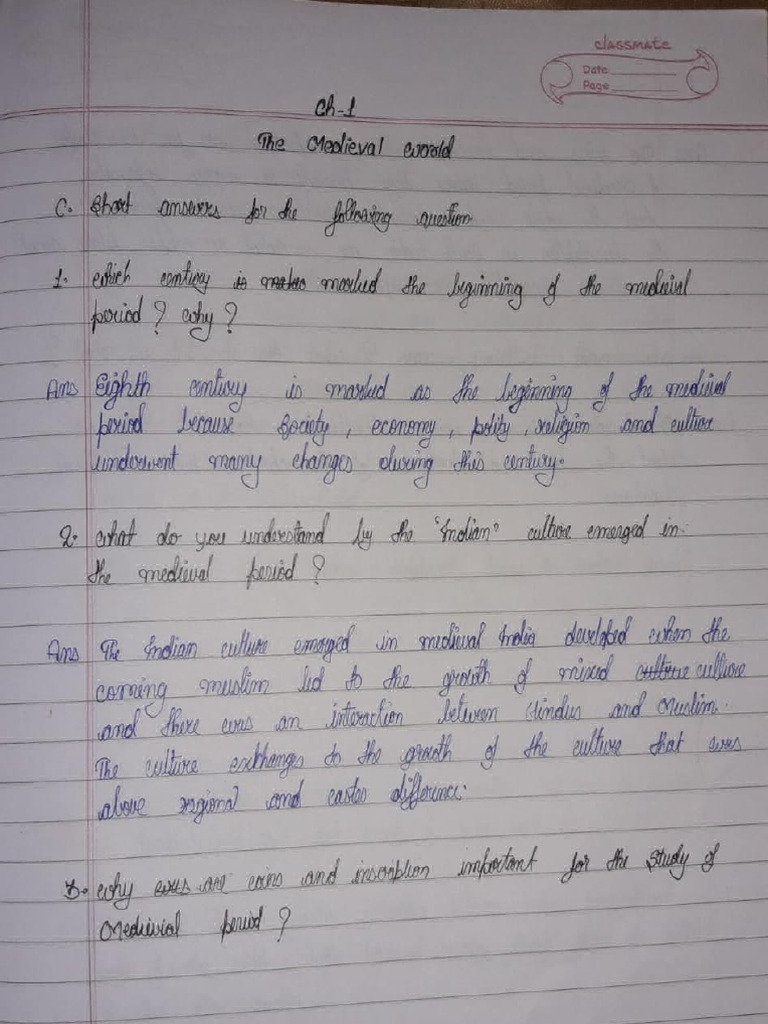 classmate
Date
Page
Ch-1
The Medieval World
C. Short answers for the following question.
1. Which century is marked the beginning of the medieival
period? Why?
Ans Eighth century is marked as the beginning of the medieival
period because society, economy, polity, religion and culture
underwent many changes during this century.
2. What do you understand by the "Indian" culture emerged in
the medieval period?
Ans The Indian culture emerged in medieval India developed when the
coming muslim led to the growth of mixed culture culture
and there was an interaction between Hindus and Muslim.
The culture exchanges to the growth of the culture that was
above regional and castes difference.
3. Why was are coins and inscription important for the study of
Medieival period?